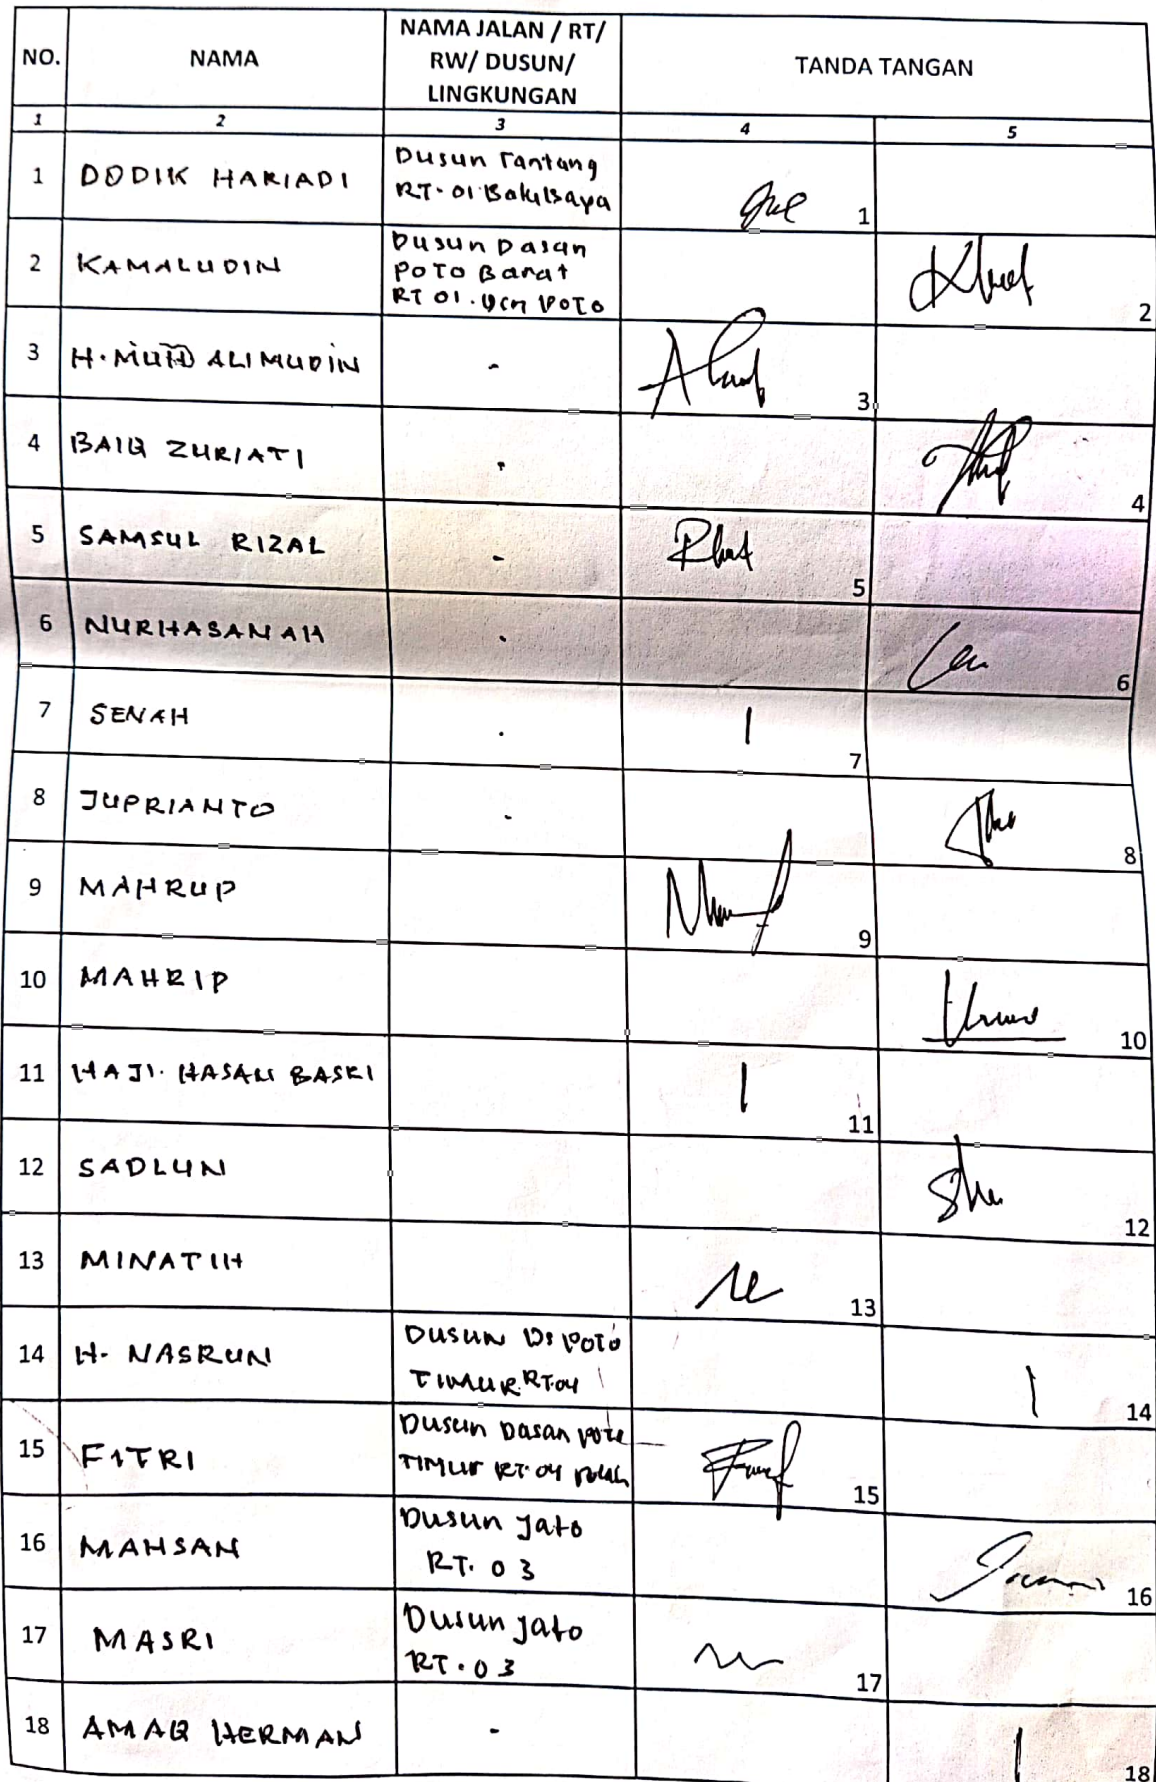 NO. NAMA NAMA JALAN / RT/ RW/ DUSUN/ LINGKUNGAN TANDA TANGAN
1 2 3 4 5
1 DODIK HARIADI Dusun Tantang
RT. 01 1
2 KAMALUDIN Dusun Dasan
POTO Barat
RT 01. POTO 2
3 H. MUHD ALIMUDIN - 3
4 BAIQ ZURIATI . 4
5 SAMSUL RIZAL - 5
6 NURHASANAH . 6
7 SENAH . 7
8 JUPRIANTO . 8
9 MAHRUP 9
10 MAHRIP 10
11 HAJI. HASAN BASRI 11
12 SADLUN 12
13 MINATIH 13
14 H. NASRUN DUSUN DS POTO
TIMUR RT.04 14
15 FITRI Dusun Dasan Poto
TIMUR RT.04 15
16 MAHSAN Dusun Jato
RT. 03 16
17 MASRI Dusun Jato
RT. 03 17
18 AMAQ HERMAN - 18